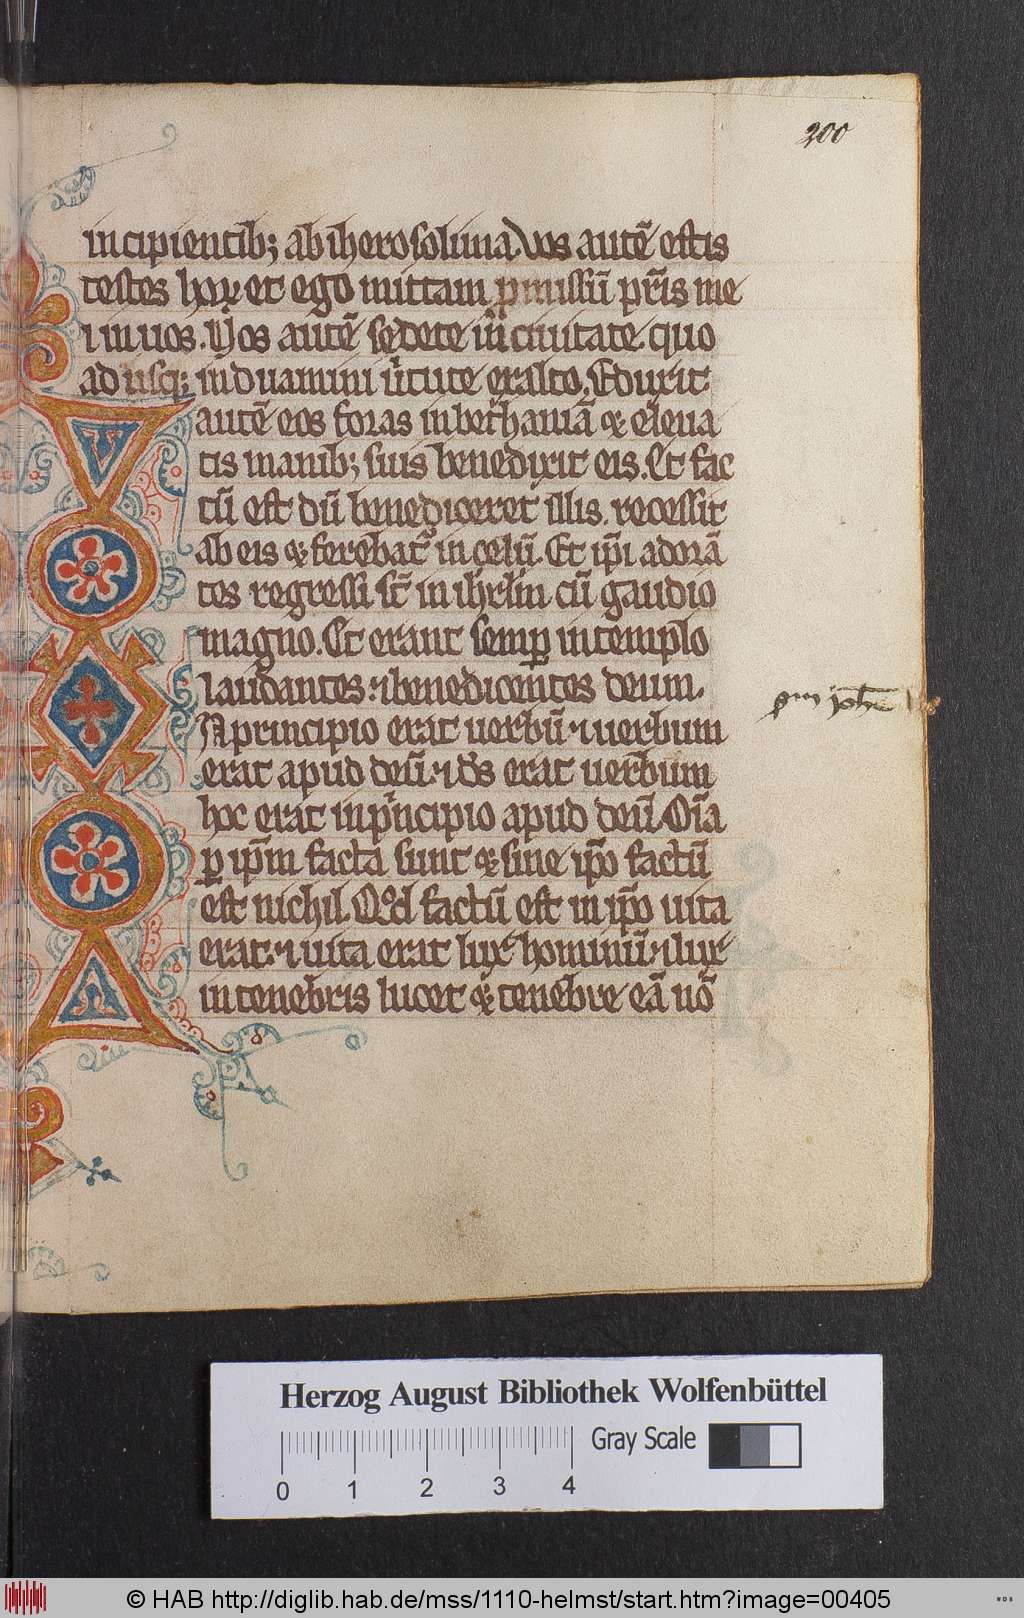 200
incipientib; ab iherosolima. Vos autē estis
testes hoꝝ et ego mittam ꝓmissū pr̄is me
i in uos. Vos autē sedete in ciuitate quo
ad usq; induamini u̾tute ex alto. Eduxit
autē eos foras in bethaniā ⁊ eleua
tis manib; suis benedixit eis. Et fac
tū est dū benediceret illis. recessit
ab eis ⁊ ferebat᷑ in celū. Et ip̄i adorā
tes regressi st̄ in ihrl̄m cū gaudio
magno. Et erant semꝑ in templo
laudantes ⁊ benedicentes deum.
N principio erat uerbū ⁊ uerbum
erat apud deū ⁊ ds̄ erat uerbum
hoc erat in pⁱncipio apud deū. Om̄ia
ꝑ ip̄m facta sunt ⁊ sine ip̄o factū
est nichil. Qd̄ factū est in ip̄o uita
erat ⁊ uita erat lux hominū ⁊ lux
in tenebris lucet ⁊ tenebre eā nō
Herzog August Bibliothek Wolfenbüttel
Gray Scale
0 1 2 3 4
© HAB http://diglib.hab.de/mss/1110-helmst/start.htm?image=00405